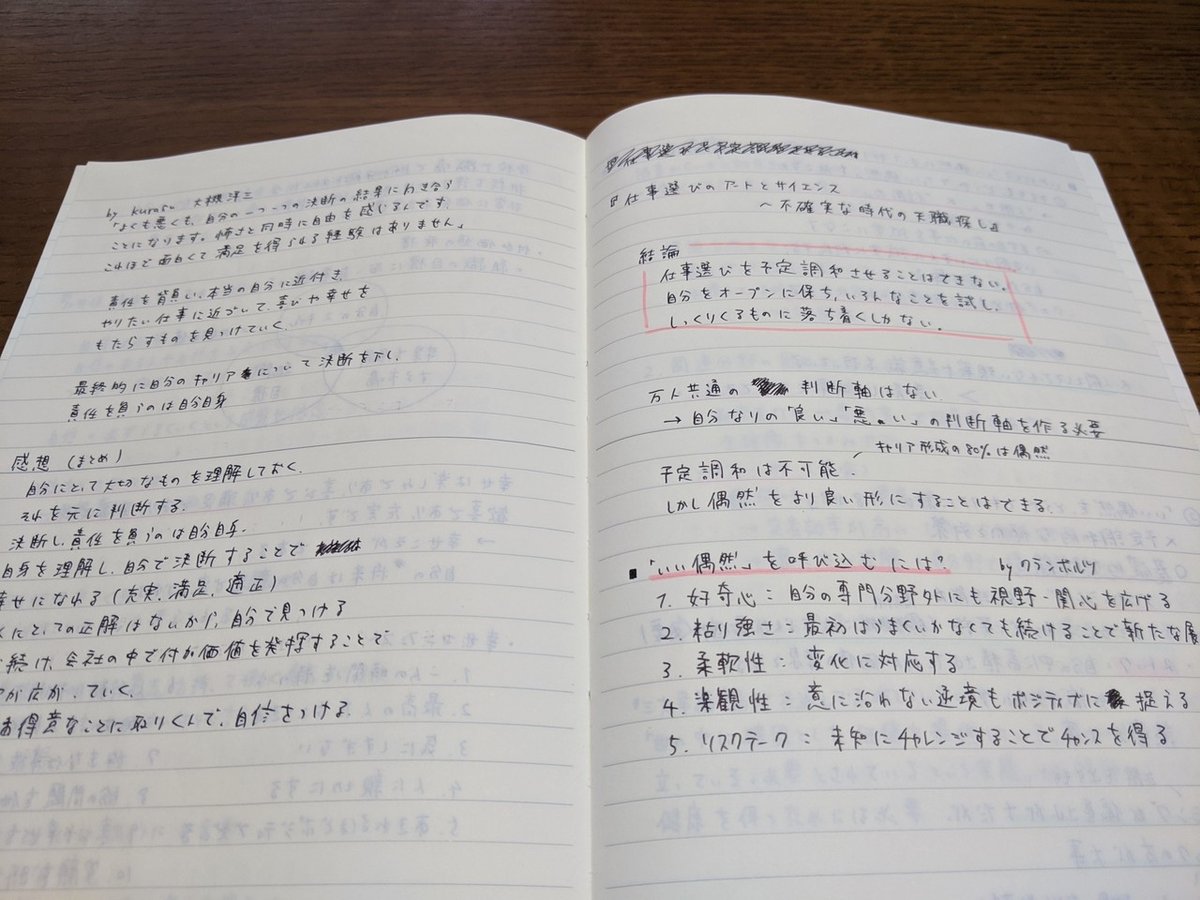 by kurasu 大槻洋三
「よくも悪くも、自分の一つ一つの決断の結果にわき合う
ことになります。怖さと同時に自由を感じるんです
これほど面白くて満足を得られる経験はありません」
責任を背負い、本当の自分に近付き
やりたい仕事に近づいて、喜びや幸せを
もたらすものを見つけていく。
最終的に自分のキャリアについて決断を下し、
責任を負うのは自分自身
感想（まとめ）
自分にとって大切なものを理解しておく。
それを元に判断する。
決断し、責任を負うのは自分自身。
自身を理解し、自分で決断することで
幸せになれる（充実、満足、適正）
にとっての正解はないから、自分で見つける
続け、会社の中で付加価値を発揮することで
が広がっていく。
得意なことに取りくんで、自信をつける。
仕事選びのアートとサイエンス
〜不確実な時代の天職探し』
結論
仕事選びを予定調和させることはできない。
自分をオープンに保ち、いろんなことを試し、
しっくりくるものに落ち着くしかない。
万人共通の 判断軸はない
→自分なりの「良い」「悪い」の判断軸を作る必要
キャリア形成の80%は偶然
予定調和は不可能
しかし偶然をより良い形にすることはできる。
■「いい偶然」を呼び込むには? byクランボルツ
1. 好奇心：自分の専門分野外にも視野・関心を広げる
2. 粘り強さ：最初はうまくいかなくても続けることで新たな展
3. 柔軟性：変化に対応する
4. 楽観性：意に沿わない逆境もポジティブに捉える
5. リスクテーク：未知にチャレンジすることでチャンスを得る